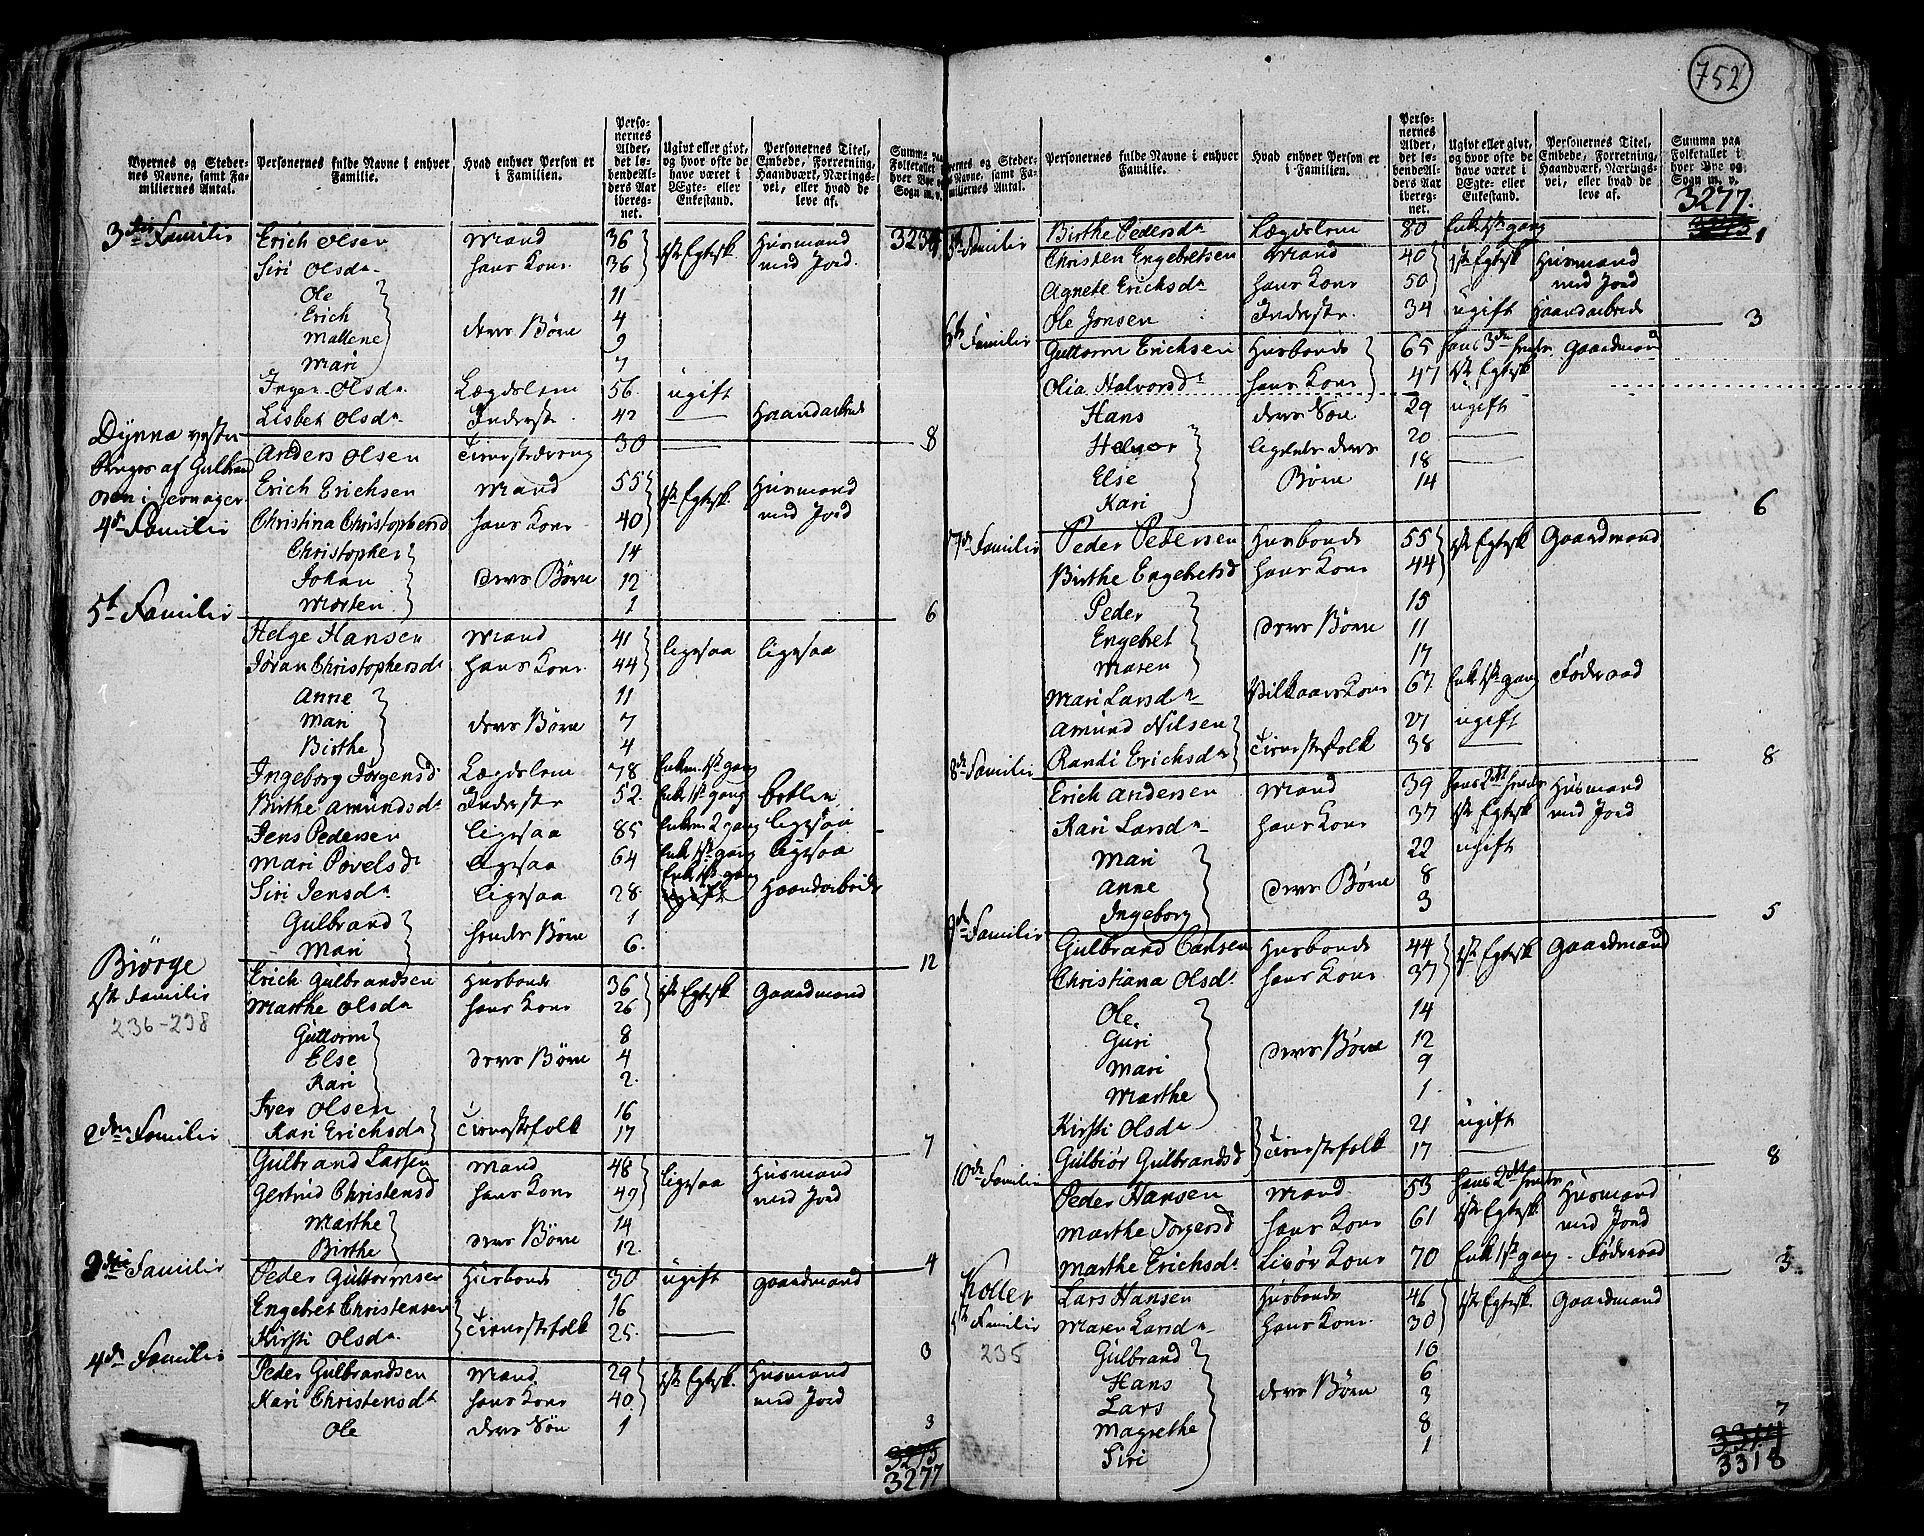 752
Byernes og Steder-
nes Navne, samt Fa-
miliernes Antal.
Personernes fulde Navne i enhver
Familie.
Hvad enhver Person er
i Familien.
Perso-
nernes
Alder,
det le-
bendeAl-
ders Aar
ibereg-
net.
Ugivt eller givt,
og hvor ofte de
have været i
Ægte- eller
Enkestand.
Personernes Titel,
Embede, Forretning,
Haandværk, Nærings-
vei, eller hvad de
leve af.
Summa paa
Folketallet i
hver Bye og
Sogn m. v.
3die Familie Erich Olsen Mand 36 1ste Egtesk Husmand
Siri Olsda hans Kone 36 med Jord
Ole 11
Erich 4
Mallene deres Børn 9
Mari 7
Inger Olsda Lægdslem 56 ugift
Lisbet Olsda Inderste 42 — Haandarbeide 8
Dynna
Anders Olsen 30 —
Erich Erichsen Mand 55 1ste Egtesk Husmand
4de Familie Christina Christophersd hans Kone 40 med Jord
Christopher 14
Johan deres Børn 12
Morten 1 6
5te Familie
Helge Hansen Mand 41 ligesaa ligesaa
Jøran Christophersdr hans Kone 44
Anne 11
Mari deres Børn 7
Birthe 4
Ingeborg Jørgensd Lægdslem 78 Enkem 1ste gang
Birthe Amundsdr Inderste 52 Enke 1ste gang betler
Jens Pedersen ligesaa 85 Enkem 2 gang ligesaa
Mari Povelsdr ligesaa 64 Enke 1ste gang ligesaa
Siri Jensda ligesaa 28 Enke 1ste gang Haandarbeide
Gulbrand 1
Mari hendes Børn 6 12
Biörge
1ste Familie Erich Gulbrandsen Husbonde 36 1ste Egtesk Gaardmand
236-238 Marthe Olsda hans Kone 26
Guttorm 8
Else deres Børn 4
Kari 2
Iver Olsen 16
Kari Erichsda Tienestefolk 17 7
2den Familie
Gulbrand Larsen Mand 48 ligesaa Husmand
Gertrud Christensd hans Kone 49 med Jord
Marthe 14
Birthe deres Børn 12 4
3die Familie
Peder Guttormsen Husbonde 30 ugift gaardmand
Engebret Christensen 16
Kirsti Olsda Tienestefolk 25 — 3
4de Familie
Peder Gulbrandsen Mand 29 1ste Egtesk. Husmand
Kari Christensdt hans Kone 40 med Jord
Ole deres Søn 1 3
3275
3277
Byernes og Steder-
nes Navne, samt Fa-
miliernes Antal.
Personernes fulde Navne i enhver
Familie.
Hvad enhver Person er
i Familien.
Perso-
nernes
Alder,
det le-
bendeAl-
ders Aar
ibereg-
net.
Ugivt eller givt,
og hvor ofte de
have været i
Ægte- eller
Enkestand.
Personernes Titel,
Embede, Forretning,
Haandværk, Nærings-
vei, eller hvad de
leve af.
Summa paa
Folketallet i
hver Bye og
Sogn m. v.
3277.
3275
Birthe Pedersda Lægdslem 80 Enke 1ste gang 1
5te Familie Christen Engebretsen Mand 40 1ste Egtesk Husmand
Agnete Erichsda hans Kone 50 med Jord
Ole Jonsen Inderste 34 ugift Haandarbeide 3
6te Familie
Guttorm Erichsen Husbonde 65 Gaardmand
Olia Halvorsda hans Kone 47 1ste Egtesk
Hans deres Søn 29 ugift
Helvor ligeledes deres 20 —
Else Børn 18 —
Kari 14 6
7de Familie Peder Pedersen Husbonde 55 1ste Egtesk Gaardmand
Birthe Engebretsd hans Kone 44
Peder 15
Engebret deres Børn 11
Maren 17
Mari Larsda Vilkaars Kone 67 Enke 1ste gang Føderaad
Amund Nilsen 21 ugift
Randi Erichsda Tienestefolk 38 — 8
8de Familie
Erich Andersen Mand 39 Husmand
Kari Larsda hans Kone 37 1ste Egtesk med Jord
Mari 22 ugift
Anne deres Børn 8
Ingeborg 3 5
9de Familie
Gulbrand Carlsen Husbonde 44 1ste Egtesk Gaardmand
Christiana Olsda hans Kone 37
Ole 14
Guri deres Børn 12
Mari 9
Marthe 1
Kirsti Olsda 21 ugift
Gulbiör Gulbrandsd Tienestefolk 17 — 8
10de Familie
Peder Hansen Mand 53 Husmand
Marthe Torgersd hans Kone 61 1ste Egtesk med Jord
Marthe Erichsda Kone 70 Enke 1ste gang Føderaad 3
Koller
1ste Familie Lars Hansen Husbonde 46 1ste Egtesk. Gaardmand
Maren Larsda hans Kone 30
235 Gulbrand 10
Hans 6
Lars deres Børn 3
Magrethe 8
Siri 1 7
3318